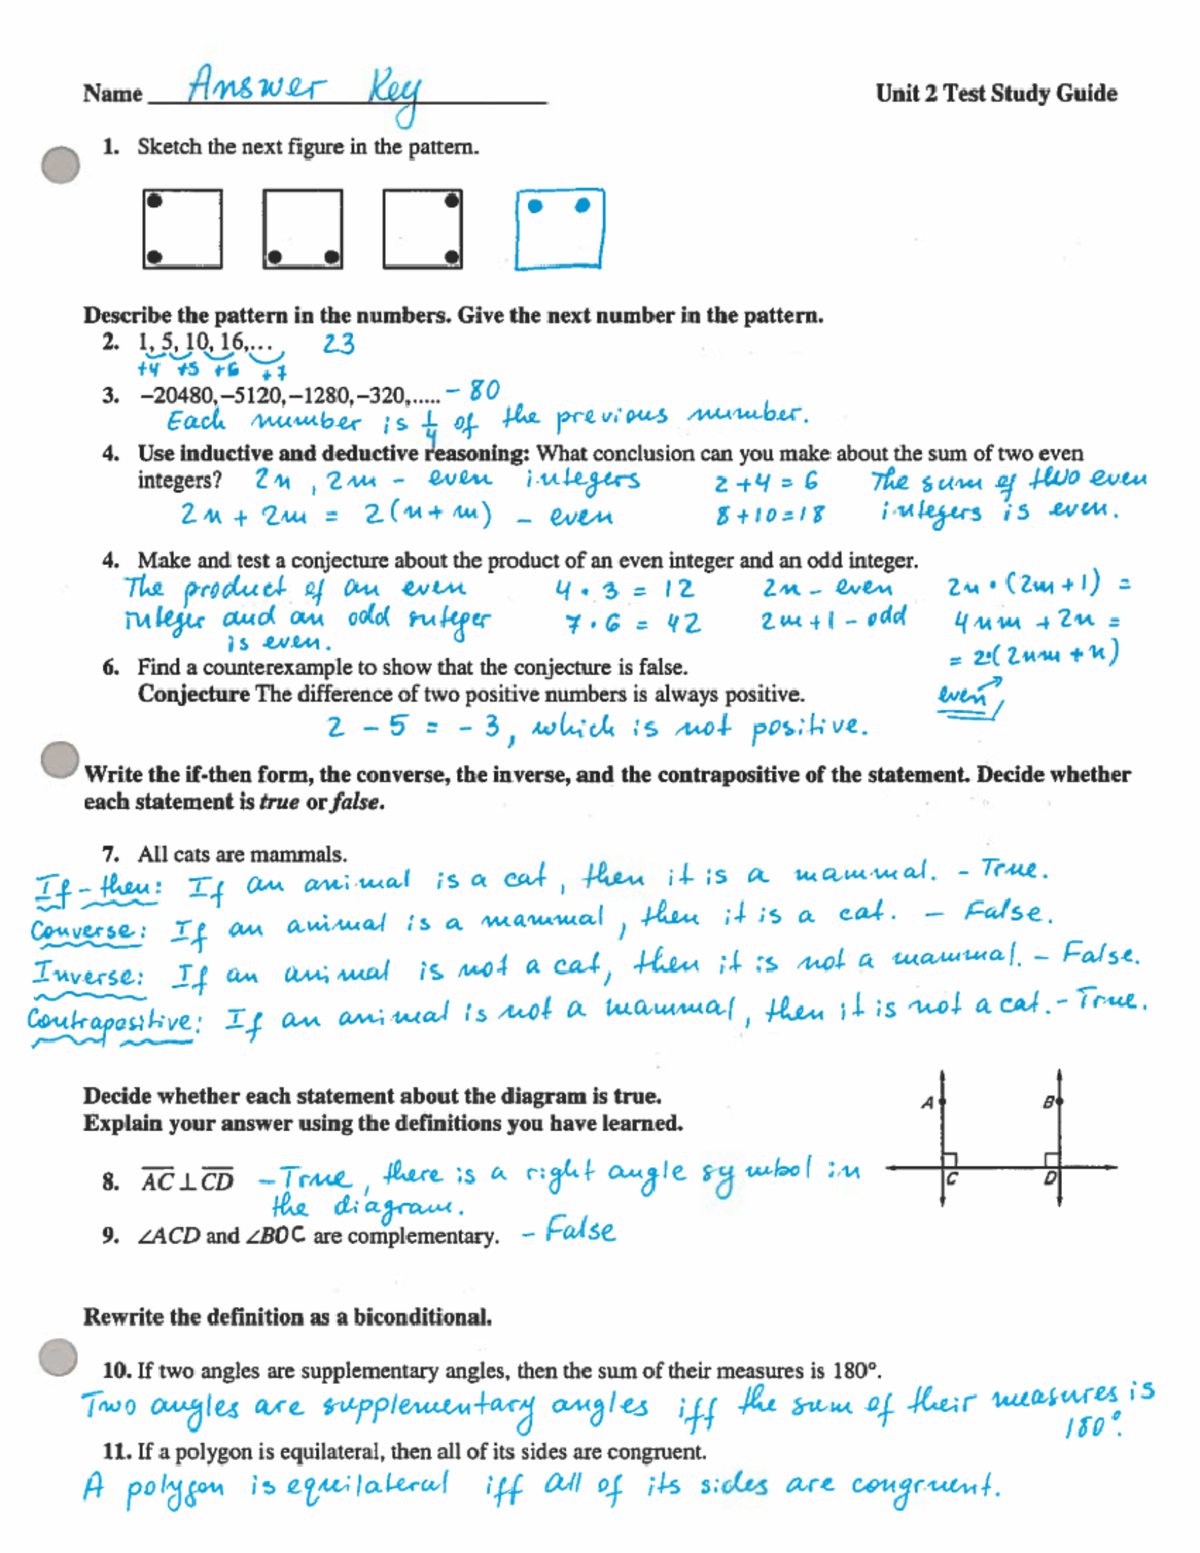 Name Answer Key Unit 2 Test Study Guide
1. Sketch the next figure in the pattern.
Describe the pattern in the numbers. Give the next number in the pattern.
2. 1, 5, 10, 16,... 23
+4 +5 +6 +7
3. –20480,–5120,–1280,–320,..... – 80
Each number is 1/4 of the previous number.
4. Use inductive and deductive reasoning: What conclusion can you make about the sum of two even
integers? 2n, 2m - even integers 2+4=6 The sum of two even
2n + 2m = 2(n+m) - even 8+10=18 integers is even.
4. Make and test a conjecture about the product of an even integer and an odd integer.
The product of an even 4 · 3 = 12 2n - even 2n · (2m+1) =
integer and an odd integer 7 · 6 = 42 2m+1 - odd 4nm + 2n =
is even. = 2·(2nm + n)
6. Find a counterexample to show that the conjecture is false.
Conjecture The difference of two positive numbers is always positive. even
2 - 5 = - 3, which is not positive.
Write the if-then form, the converse, the inverse, and the contrapositive of the statement. Decide whether
each statement is true or false.
7. All cats are mammals.
If - then: If an animal is a cat, then it is a mammal. - True.
Converse: If an animal is a mammal, then it is a cat. - False.
Inverse: If an animal is not a cat, then it is not a mammal. - False.
Contrapositive: If an animal is not a mammal, then it is not a cat. - True.
Decide whether each statement about the diagram is true.
Explain your answer using the definitions you have learned.
A B
8. AC ⊥ CD - True, there is a right angle symbol in
C D
the diagram.
9. ∠ACD and ∠BDC are complementary. - False
Rewrite the definition as a biconditional.
10. If two angles are supplementary angles, then the sum of their measures is 180°.
Two angles are supplementary angles iff the sum of their measures is
180°.
11. If a polygon is equilateral, then all of its sides are congruent.
A polygon is equilateral iff all of its sides are congruent.